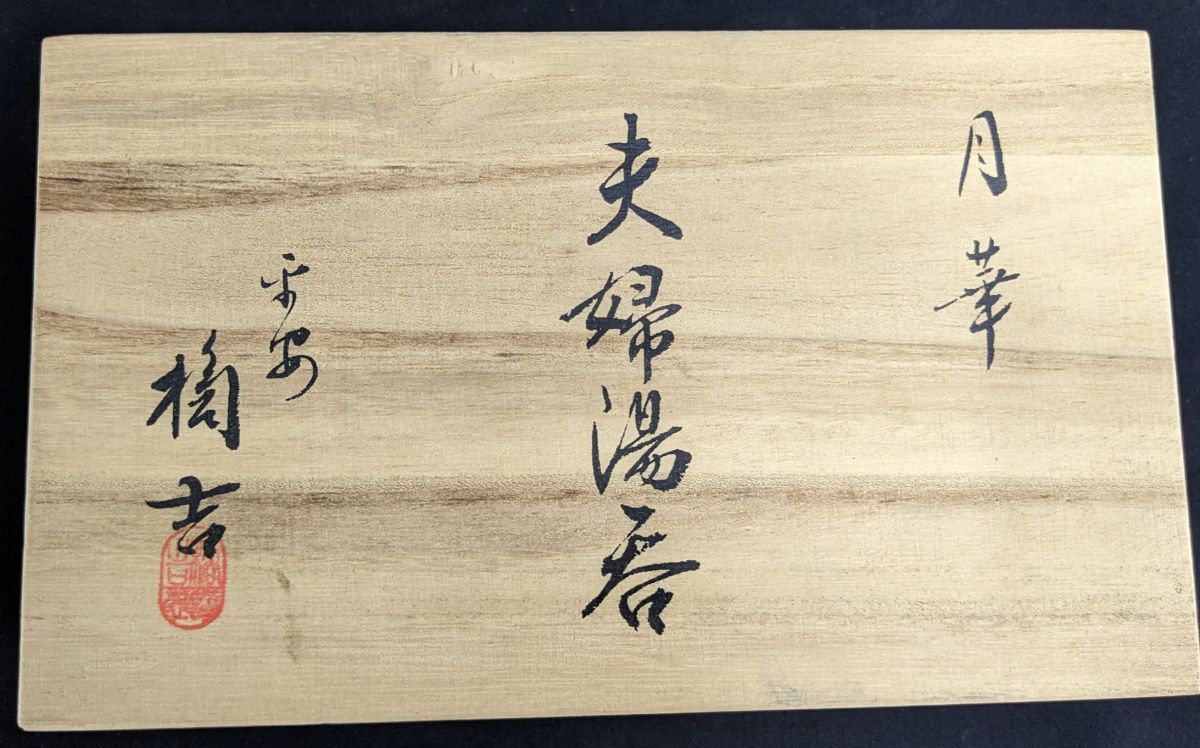 月華
夫婦湯呑
平安
橘吉